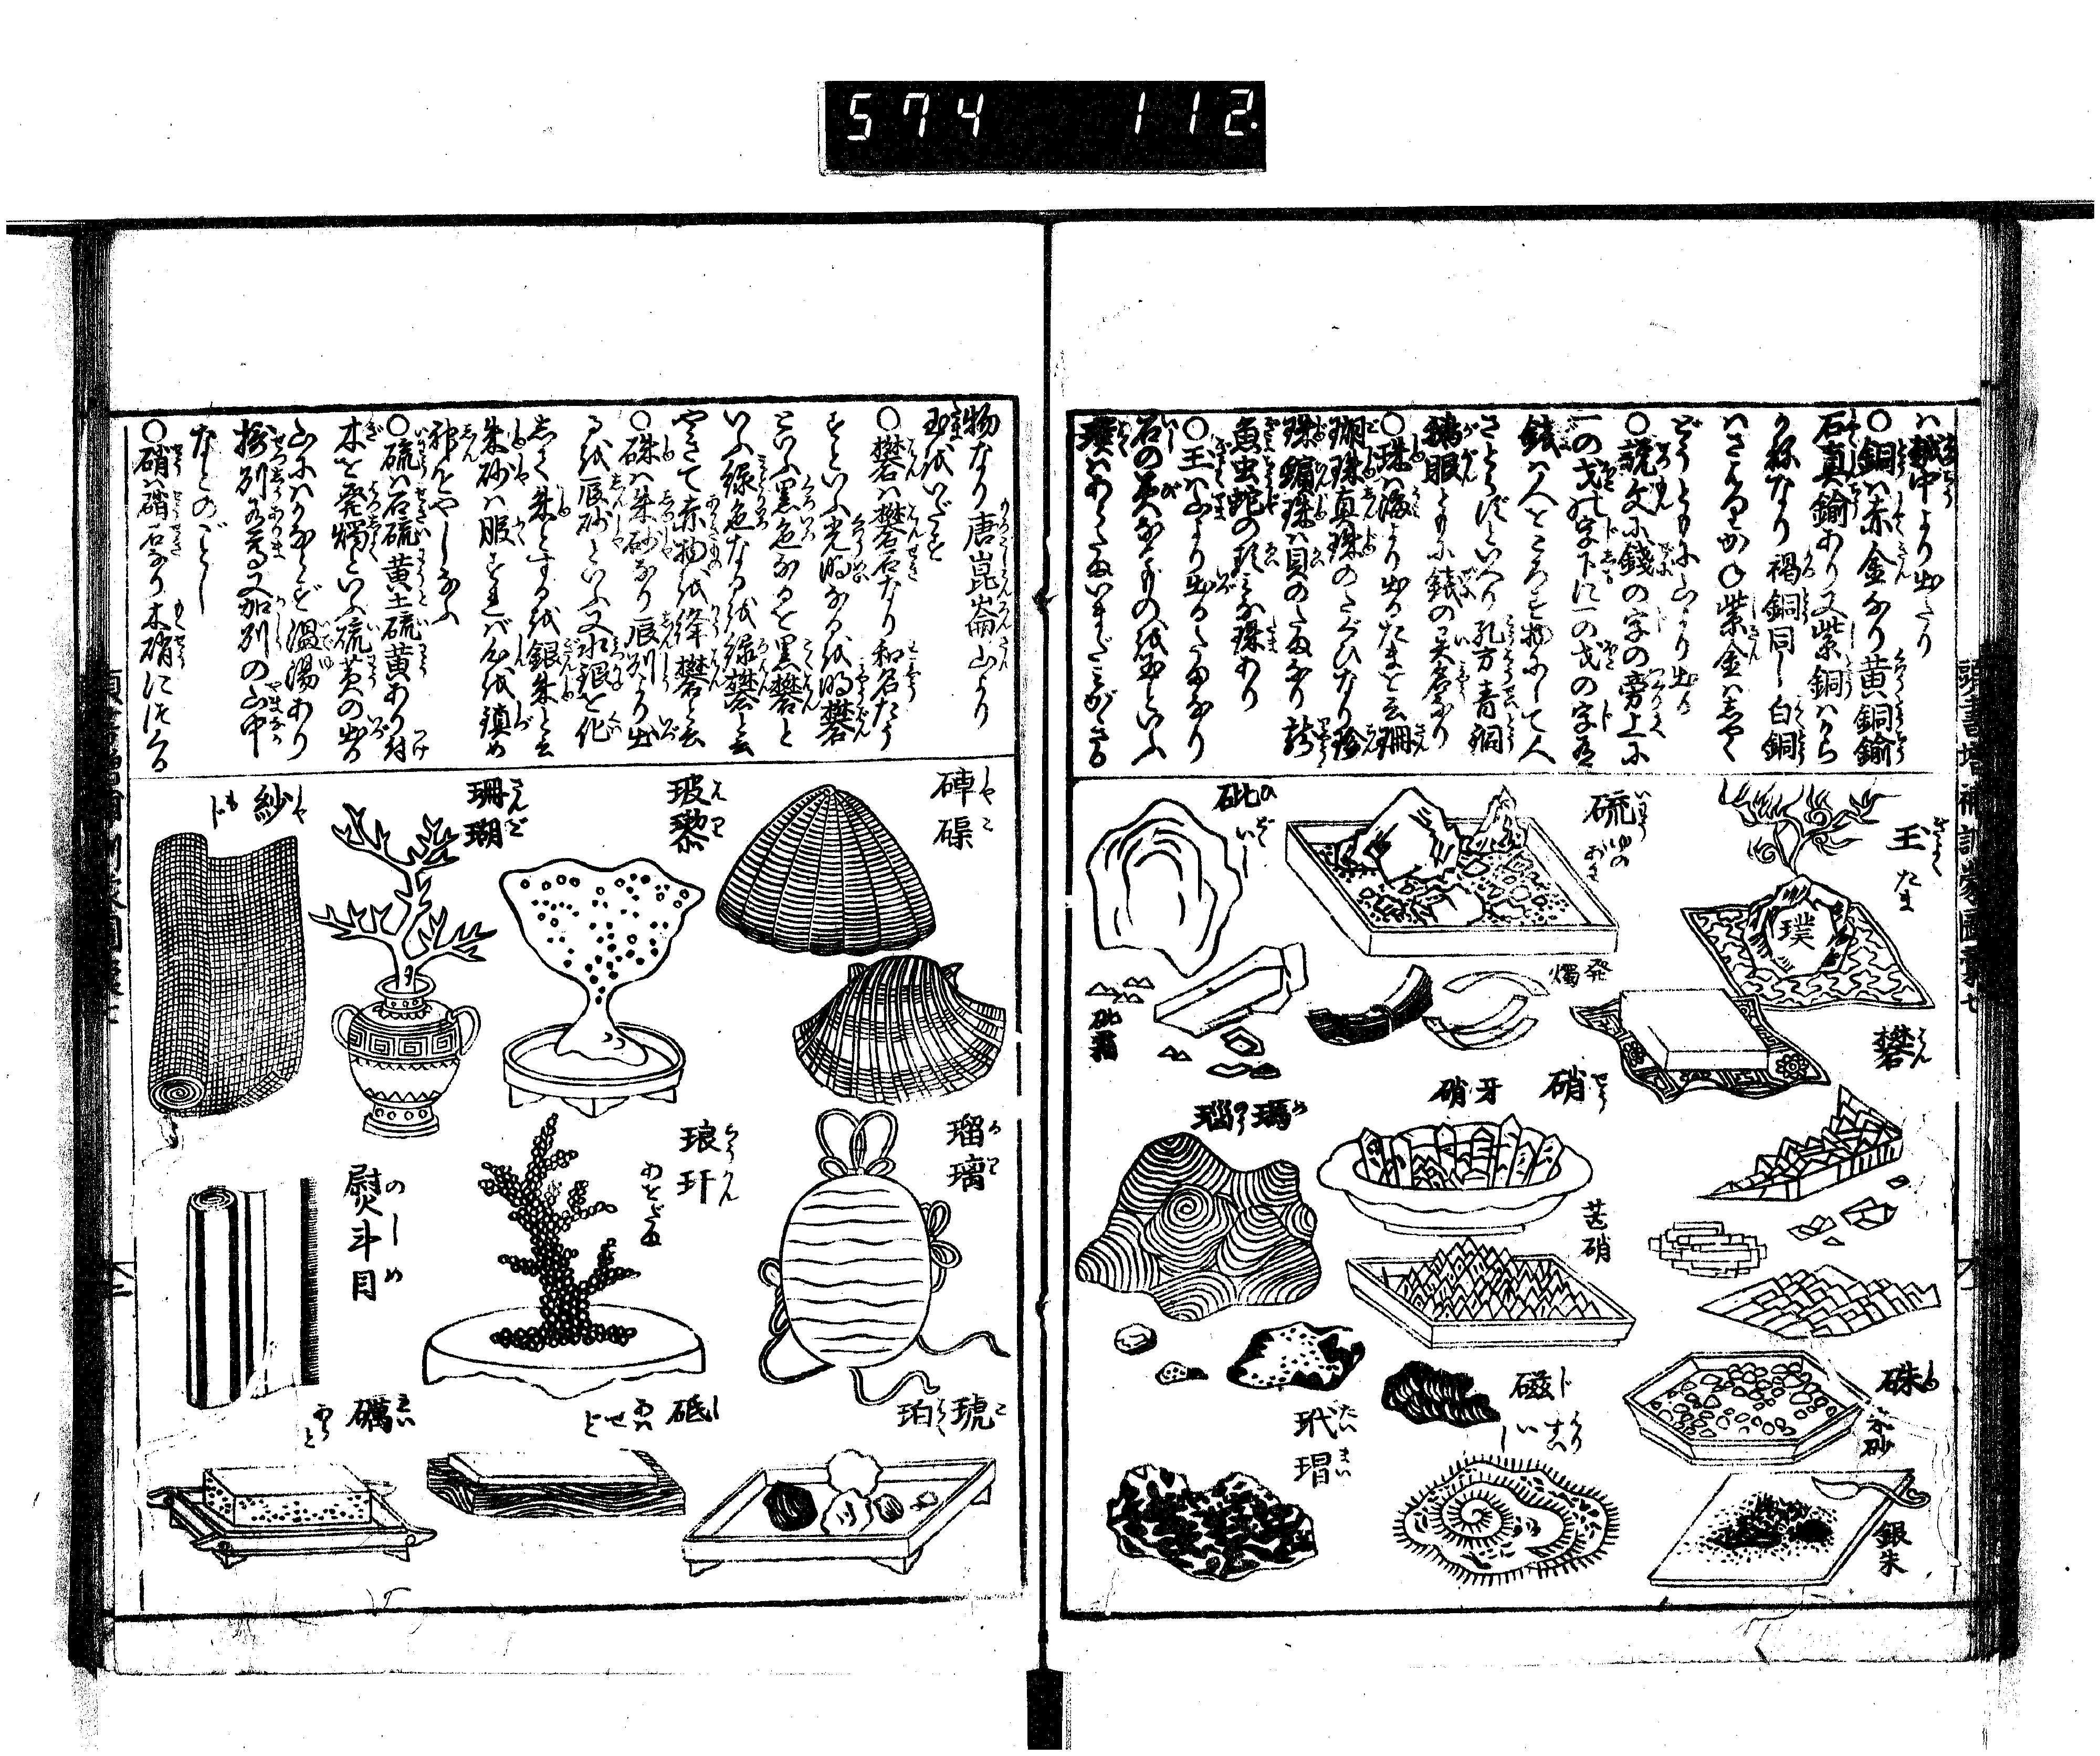 574 112.
○銅ハ赤金なり黄銅鍮
石真鍮あり又紫銅ハから
かねなり 褐銅同し 白銅
ハさはりか○紫金ハしやく
どうともに山より出る
○説文に錢の字の旁上に
一の戈の字下に一の戈の字有
さとらずといへり孔方青銅
鵝眼ともに錢の異名なり
○珠ハ海より出るたまを云珊
瑚珠真珠のたぐひなり
○玉ハ山より出るたまなり
石の美なるものを玉といふ
璞ハあらたまいまだみがきざる
玉 ぎよく たま
璞
礬 はん
硫 いわう ゆのあわ
発燭
砒 ひ
砒霜
硝 せう
牙硝
芒硝
瑪瑙 めのう
硃 しゆ
朱砂
銀朱
磁 じ
玳瑁 たいまい
物なり唐崑崙山より
玉をいだす
○礬ハ礬石なり和名たう
すといふ光明なるを明礬
といふ黒色なるを黒礬と
いふ緑色なるを緑礬と云
やきて赤物を絳礬と云
○硃ハ朱砂なり辰州より出
るを辰砂といふ又水銀を化
して朱とするを銀朱と云
朱砂ハ服すれバ心を鎮め
神をやしなふ
○硫ハ石硫黄土硫黄あり付
木を発燭といふ硫黄の出る
山にハかならず温湯あり
摂州有馬又加州の山中
などのごとし
○硝ハ硝石なり木硝にはくる
硨磲 しやこ
玻瓈 はり
珊瑚 さんご
紗 しや もじ
瑠璃 るり
琅玕 らうかん あをだま
熨斗目 のしめ
琥珀 こはく
砥 し あはせど
礪 れい あらと